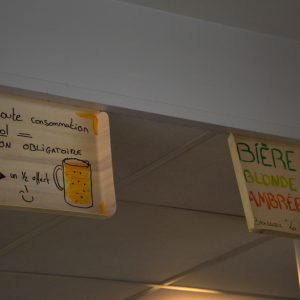 oute consommation
ol =
ON OBLIGATOIRE
un ½ offert
BIÈRE
BLONDE
AMBRÉE